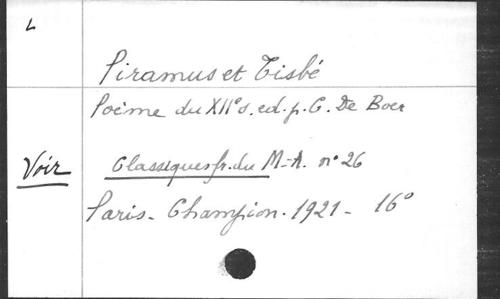 L
Piramus et Tisbé
Poème du XIIe s. ed. p. C. De Boer
Voir Classiques fr. du M-A. n° 26
Paris - Champion - 1921 - 16°